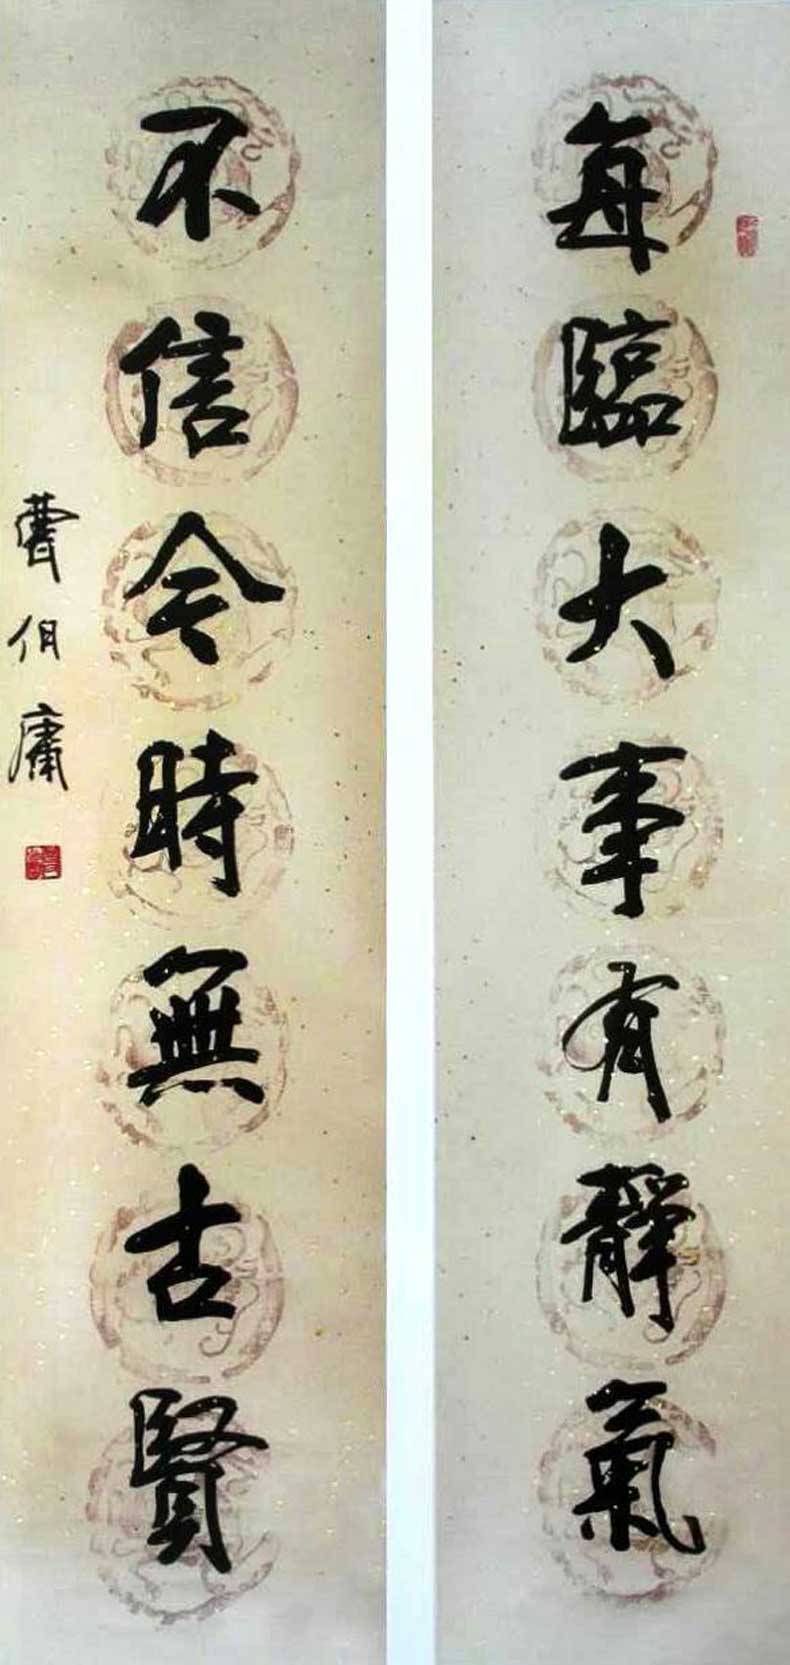 每臨大事有靜氣
不信今時無古賢
曹伯庸